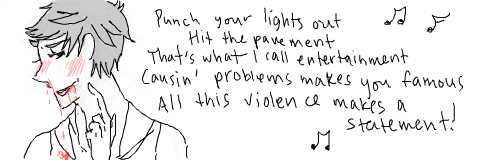 Punch your lights out
Hit the pavement
That's what I call entertainment
Causin' problems makes you famous
All this violence makes a
statement!